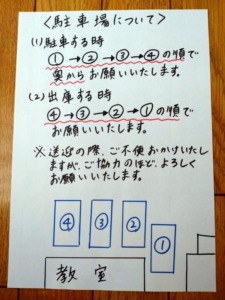 〈駐車場について〉
(1) 駐車する時
①→②→③→④の順で
奥からお願いいたします。
(2) 出庫する時
④→③→②→①の順で
お願いいたします。
※送迎の際、ご不便おかけいたし
ますが、ご協力のほど、よろしく
お願いいたします。
④ ③ ② ①
教室